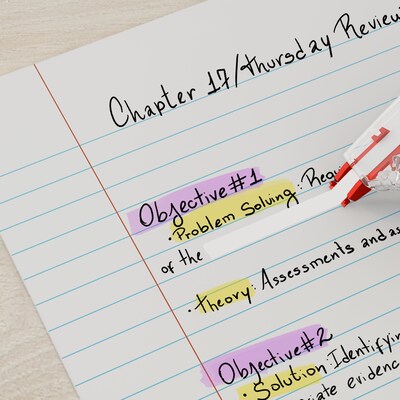 Chapter 17/Thursday Review
Objective #1
• Problem Solving: Requ
of the
• Theory: Assessments and as
Objective #2
• Solution: Identifying
evidenc